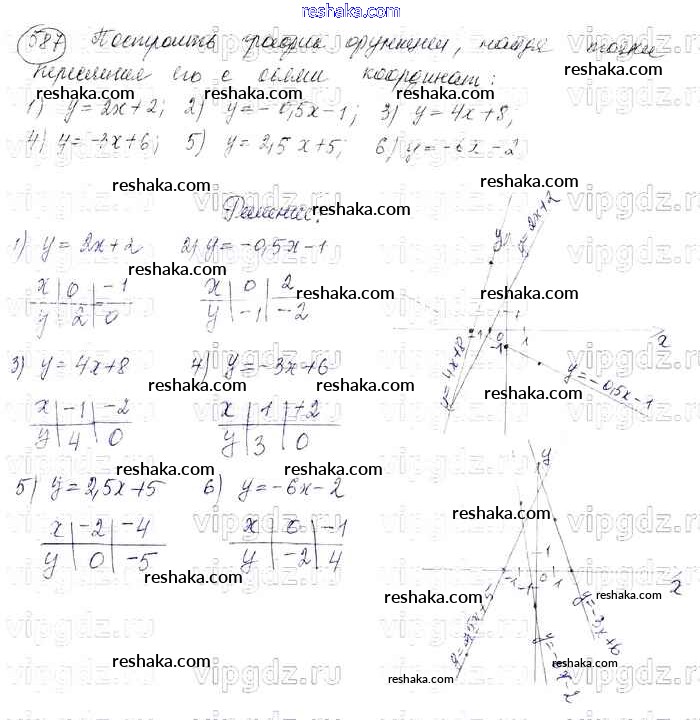 reshaka.com
587 Построить график функции, найдя точки
пересечения его с осями координат:
1) y = 2x+2; 2) y = -0,5x-1; 3) y = 4x+8;
4) y = -3x+6; 5) y = 2,5x+5; 6) y = -6x-2
reshaka.com reshaka.com
Решение:
1) y = 2x+2 2) y = -0,5x-1
reshaka.com
x 0 -1
y 2 0
x 0 2
y -1 -2
reshaka.com reshaka.com
y
y=2x+2
1
-2 -1 0 1
-1
x
y=4x+8
y=-0,5x-1
reshaka.com
3) y = 4x+8 4) y = -3x+6
reshaka.com reshaka.com
x -1 -2
y 4 0
x 1 +2
y 3 0
reshaka.com
reshaka.com
5) y = 2,5x+5 6) y = -6x-2
x -2 -4
y 0 -5
x 0 -1
y -2 4
reshaka.com
reshaka.com
y
1
-1 0 1
-1
x
y=2,5x+5
y=-3x+6
reshaka.com
reshaka.com
reshaka.com reshaka.com
reshaka.com
vipgdz.ru